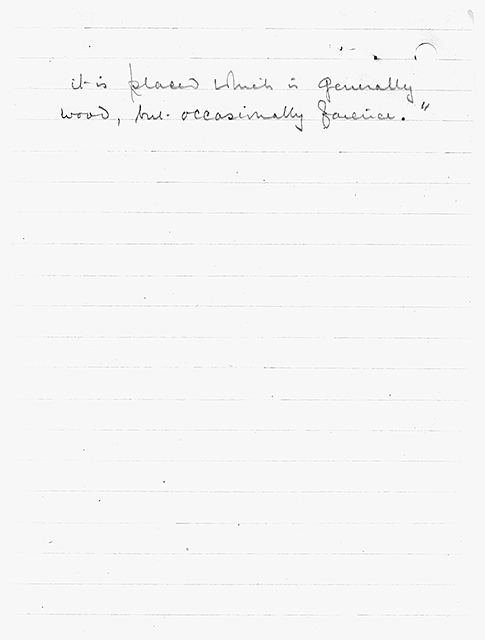 it is placed which is generally
wood, but occasionally faience."